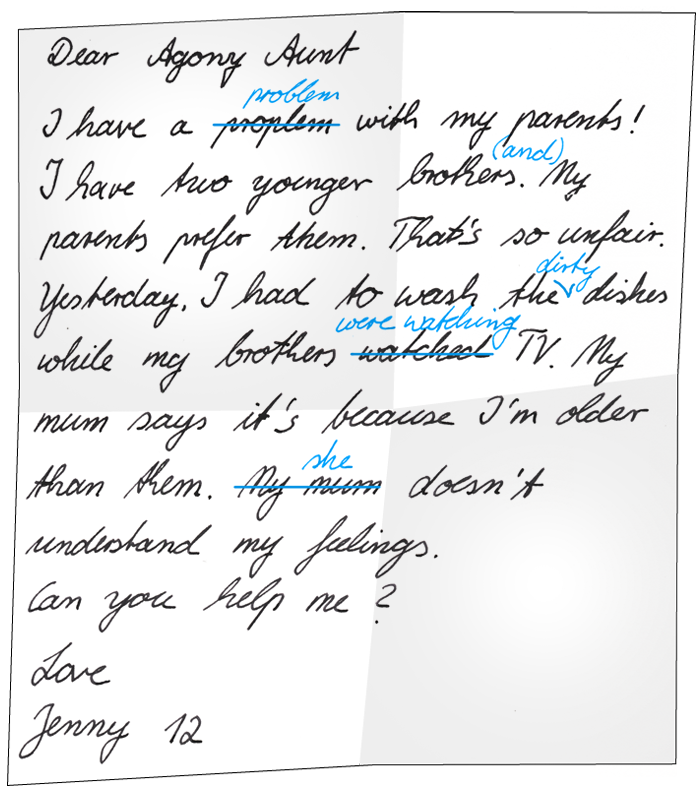 Dear Agony Aunt
problem
I have a proplem with my parents!
(and)
I have two younger brothers. My
parents prefer them. That's so unfair.
dirty
Yesterday, I had to wash the dishes
were watching
while my brothers watched TV. My
mum says it's because I'm older
she
than them. My mum doesn't
understand my feelings.
Can you help me?
Love
Jenny 12